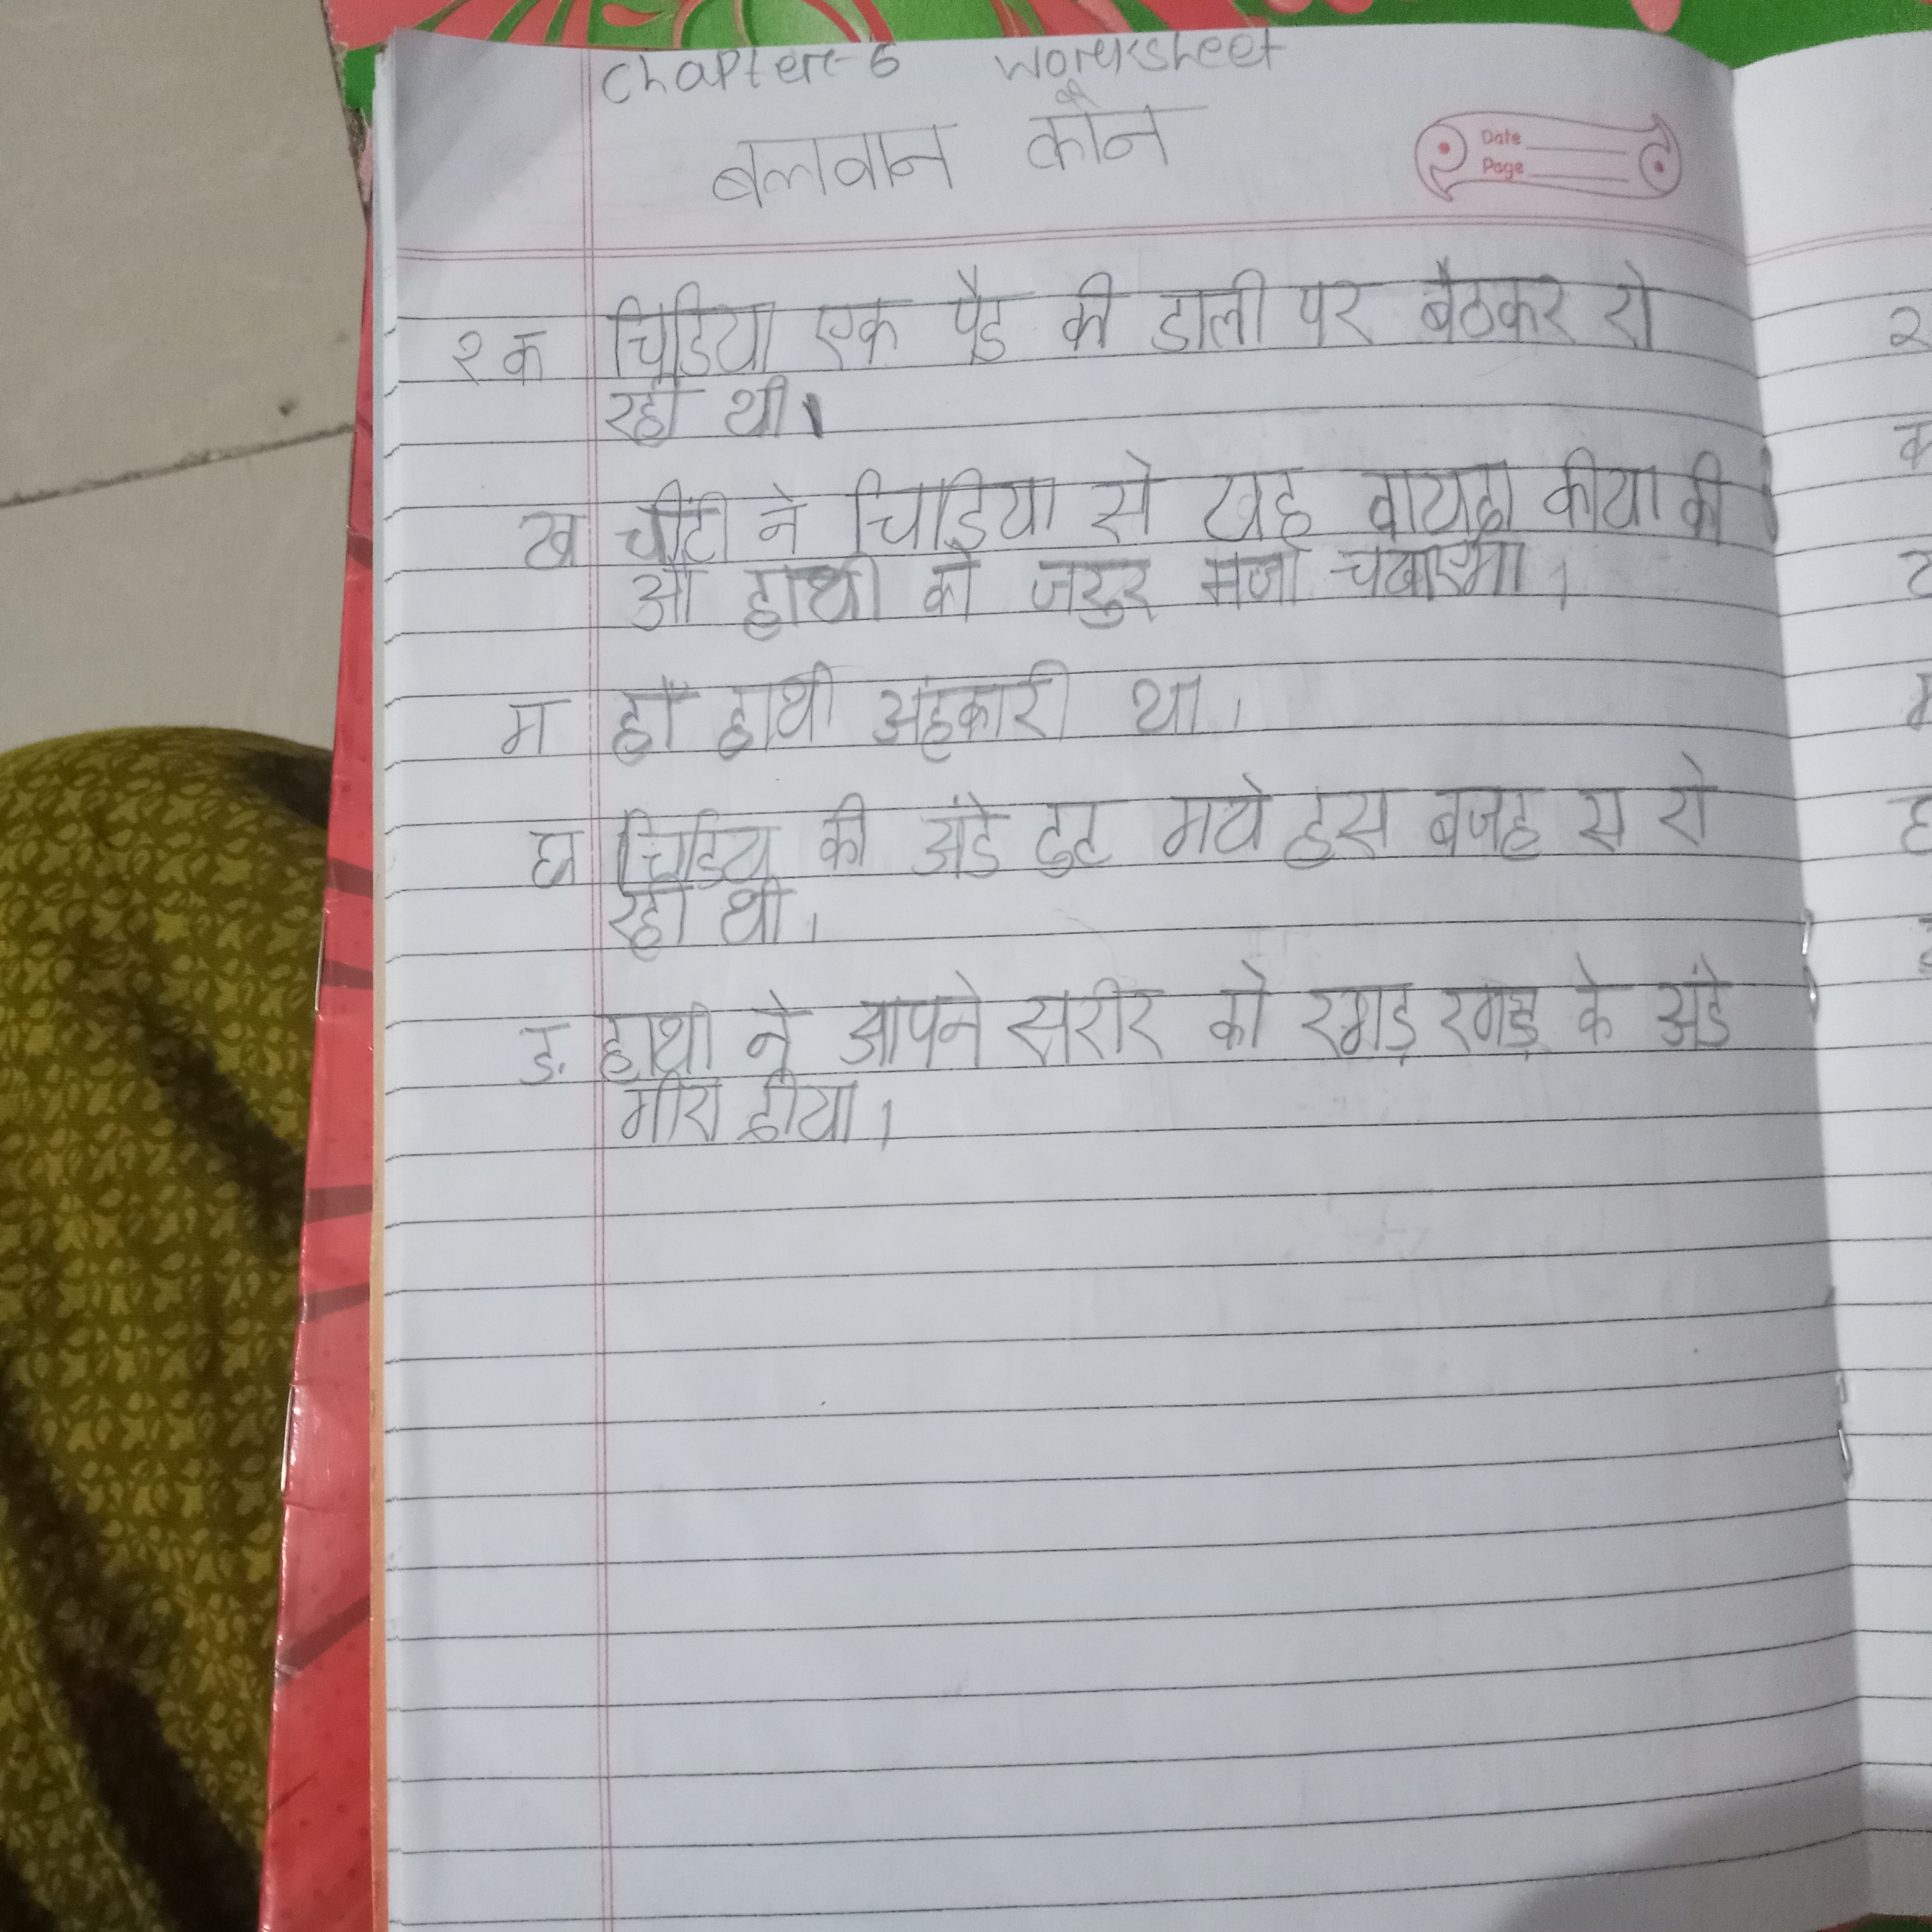 Chapter-6 Worksheet
बलवान कौन
Date
Page
१ क चिडिया एक पैड की डाली पर बैठकर रो
रही थी।
ख चींटी ने चिडिया से यह वायदा कीया की
ओ हाथी को जरुर मजा चखाएगा।
ग हाँ हाथी अंहकारी था।
घ चिडिय की अंडे टुट गये इस बजह स रो
रही थी।
ड. हाथी ने आपने सरीर को रगड़ रगड़ के अंडे
गीरा दीया।